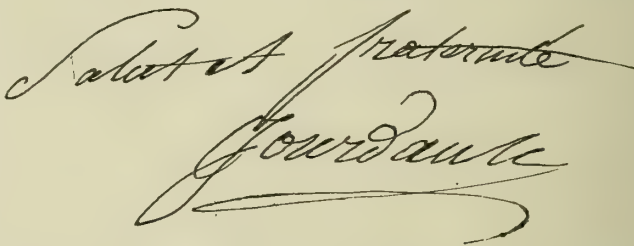 Salut et fraternité
Jourdan